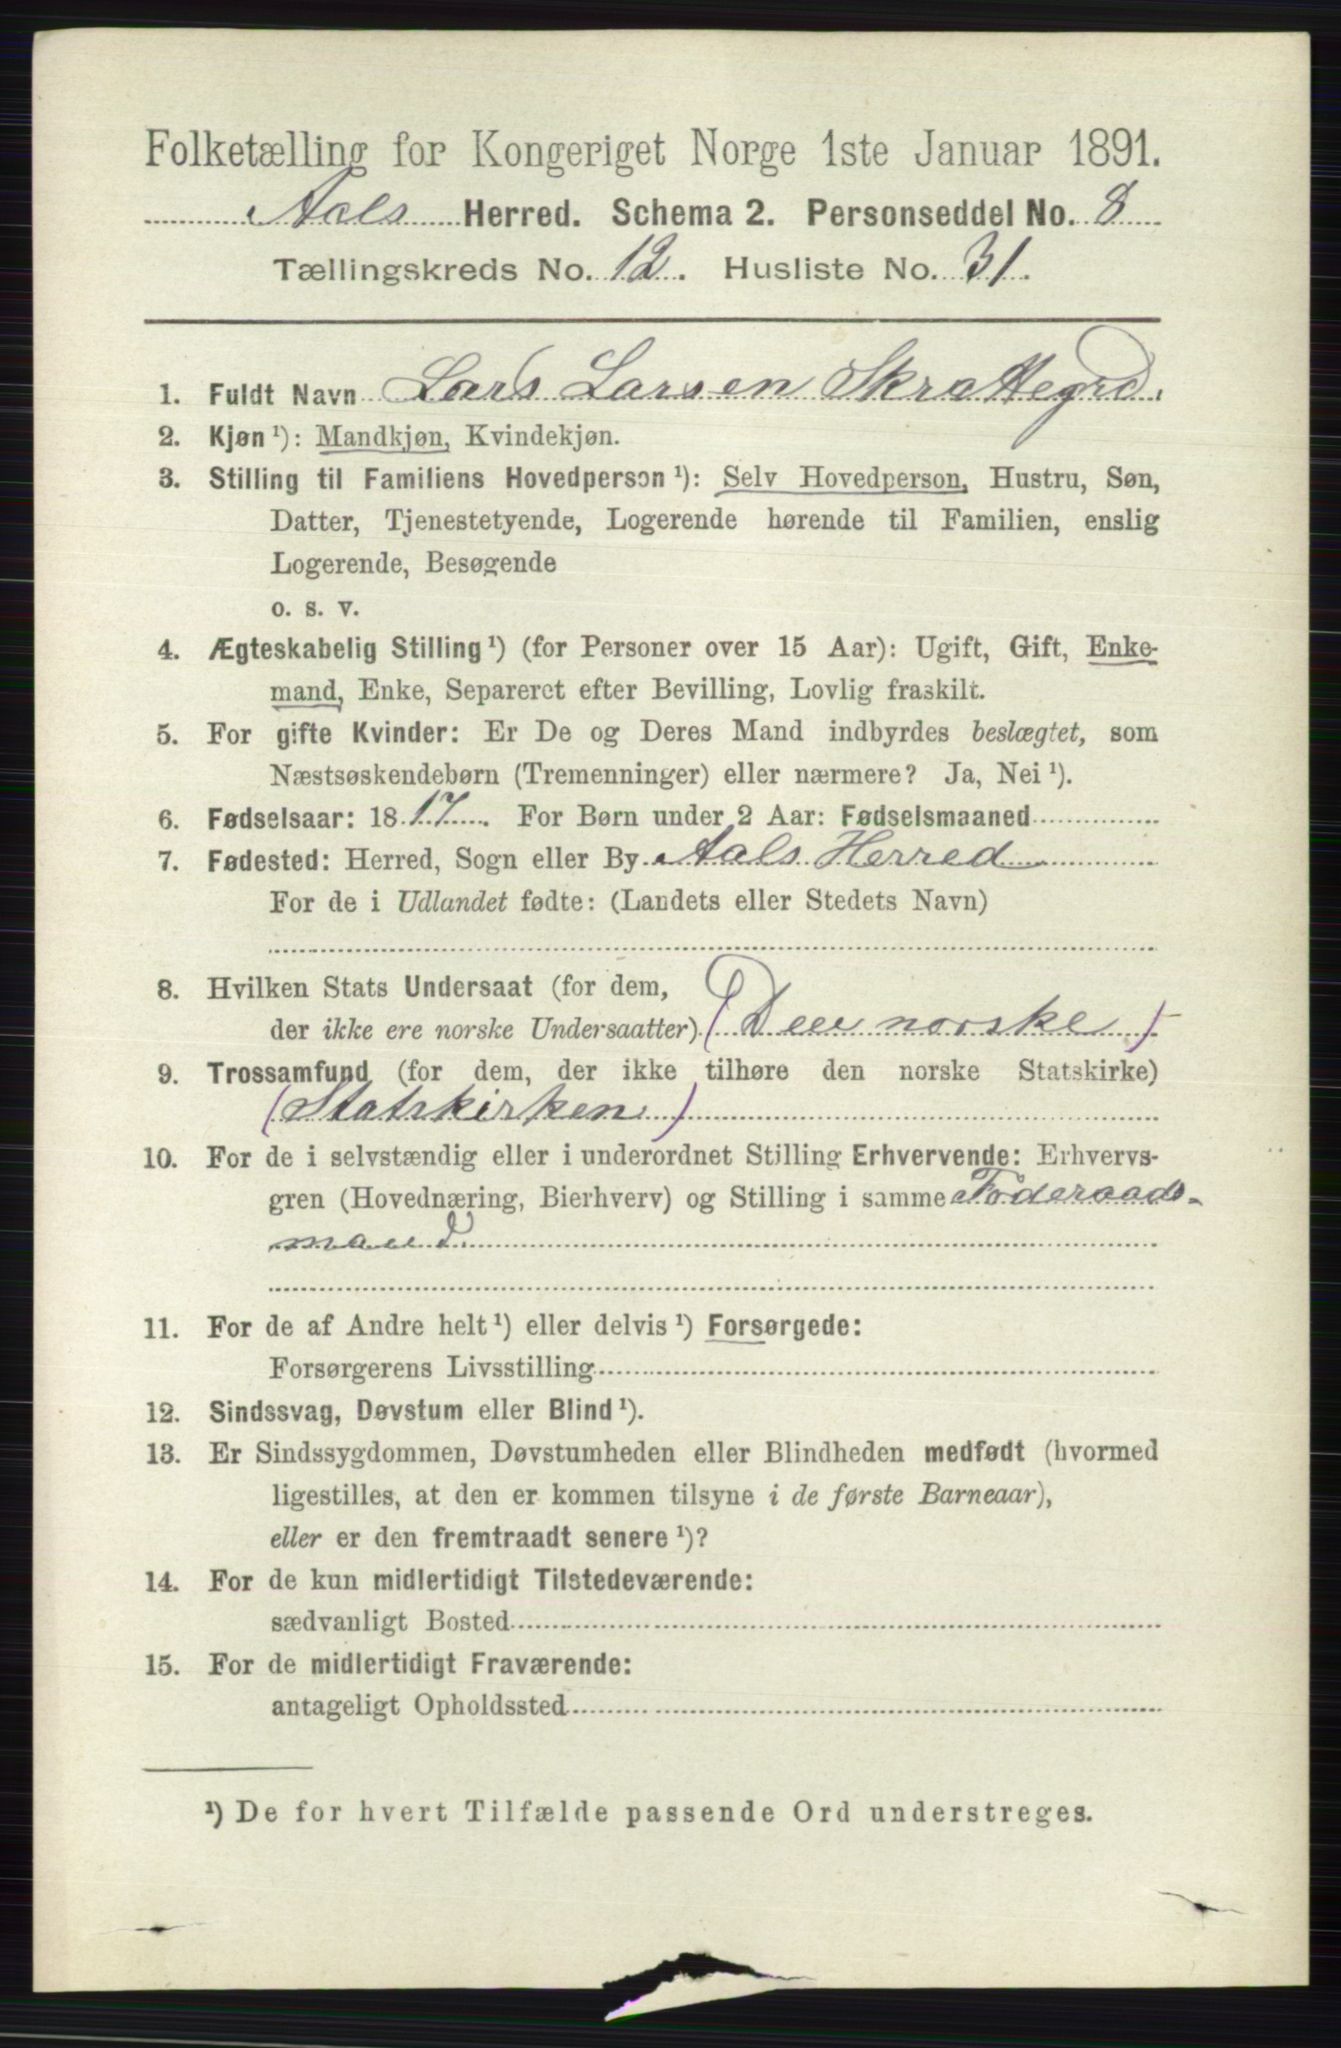 Folketælling for Kongeriget Norge 1ste Januar 1891.
Aals Herred. Schema 2. Personseddel No. 8
Tællingskreds No. 12. Husliste No. 31.
1. Fuldt Navn Lars Larsen Skrattegrd.
2. Kjøn ¹): Mandkjøn, Kvindekjøn.
3. Stilling til Familiens Hovedperson ¹): Selv Hovedperson, Hustru, Søn,
Datter, Tjenestetyende, Logerende hørende til Familien, enslig
Logerende, Besøgende
o. s. v.
4. Ægteskabelig Stilling ¹) (for Personer over 15 Aar): Ugift, Gift, Enke-
mand, Enke, Separeret efter Bevilling, Lovlig fraskilt.
5. For gifte Kvinder: Er De og Deres Mand indbyrdes beslægtet, som
Næstsøskendebørn (Tremenninger) eller nærmere? Ja, Nei ¹).
6. Fødselsaar: 1817. For Børn under 2 Aar: Fødselsmaaned
7. Fødested: Herred, Sogn eller By Aals Herred
For de i Udlandet fødte: (Landets eller Stedets Navn)
8. Hvilken Stats Undersaat (for dem,
der ikke ere norske Undersaatter) (Den norske)
9. Trossamfund (for dem, der ikke tilhøre den norske Statskirke)
(Statskirken)
10. For de i selvstændig eller i underordnet Stilling Erhvervende: Erhvervs-
gren (Hovednæring, Bierhverv) og Stilling i samme Föderaads-
mand
11. For de af Andre helt ¹) eller delvis ¹) Forsørgede:
Forsørgerens Livsstilling
12. Sindssvag, Døvstum eller Blind ¹).
13. Er Sindssygdommen, Døvstumheden eller Blindheden medfødt (hvormed
ligestilles, at den er kommen tilsyne i de første Barneaar),
eller er den fremtraadt senere ¹)?
14. For de kun midlertidigt Tilstedeværende:
sædvanligt Bosted
15. For de midlertidigt Fraværende:
antageligt Opholdssted
¹) De for hvert Tilfælde passende Ord understreges.